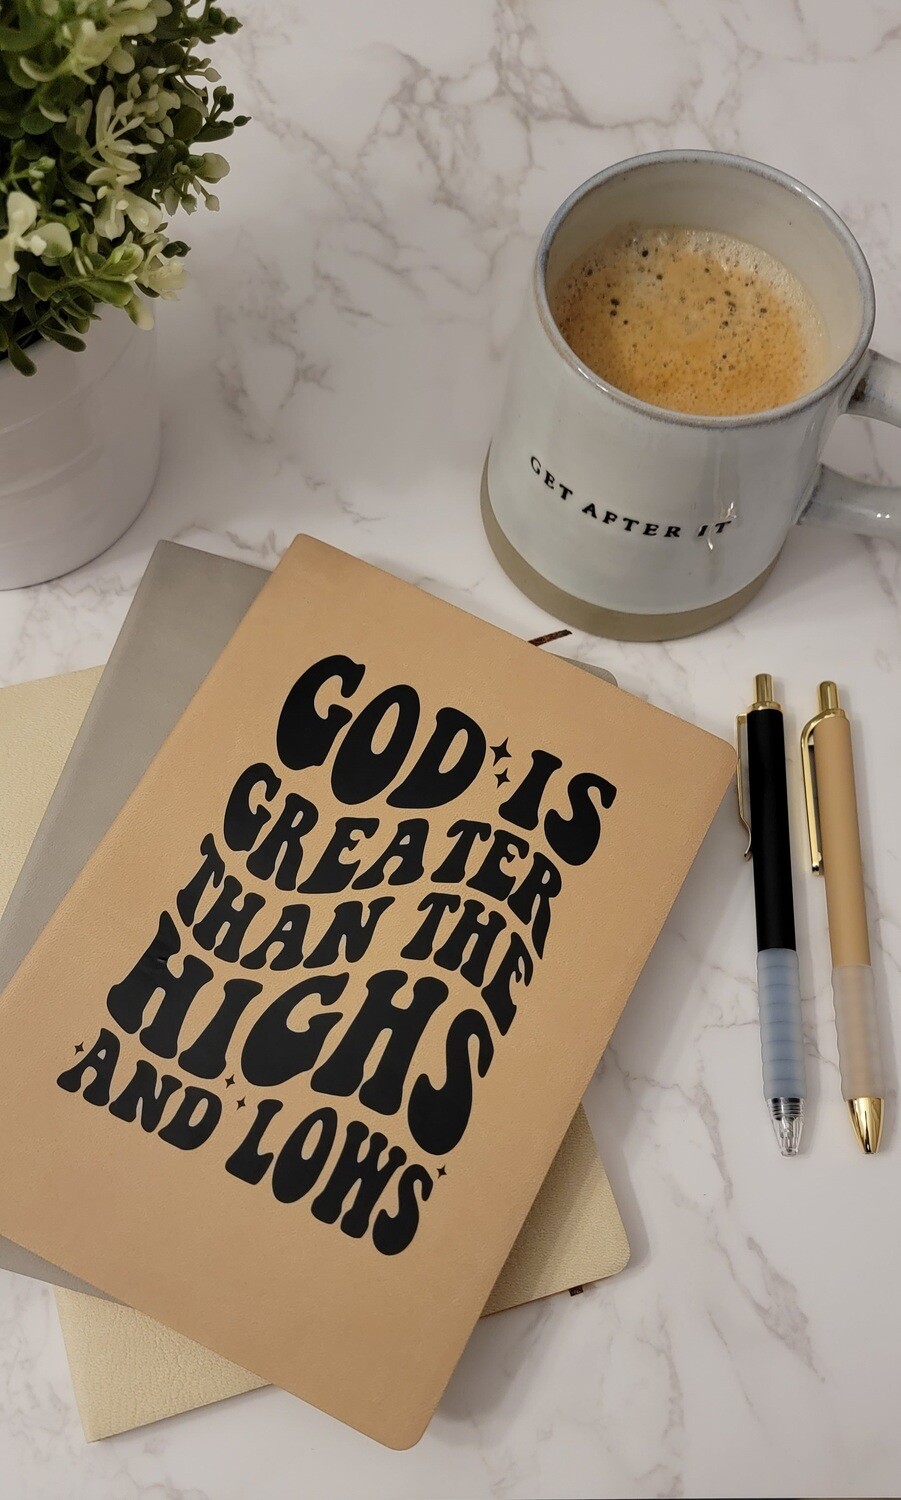 GET AFTER IT
GOD IS
GREATER
THAN THE
HIGHS
AND LOWS